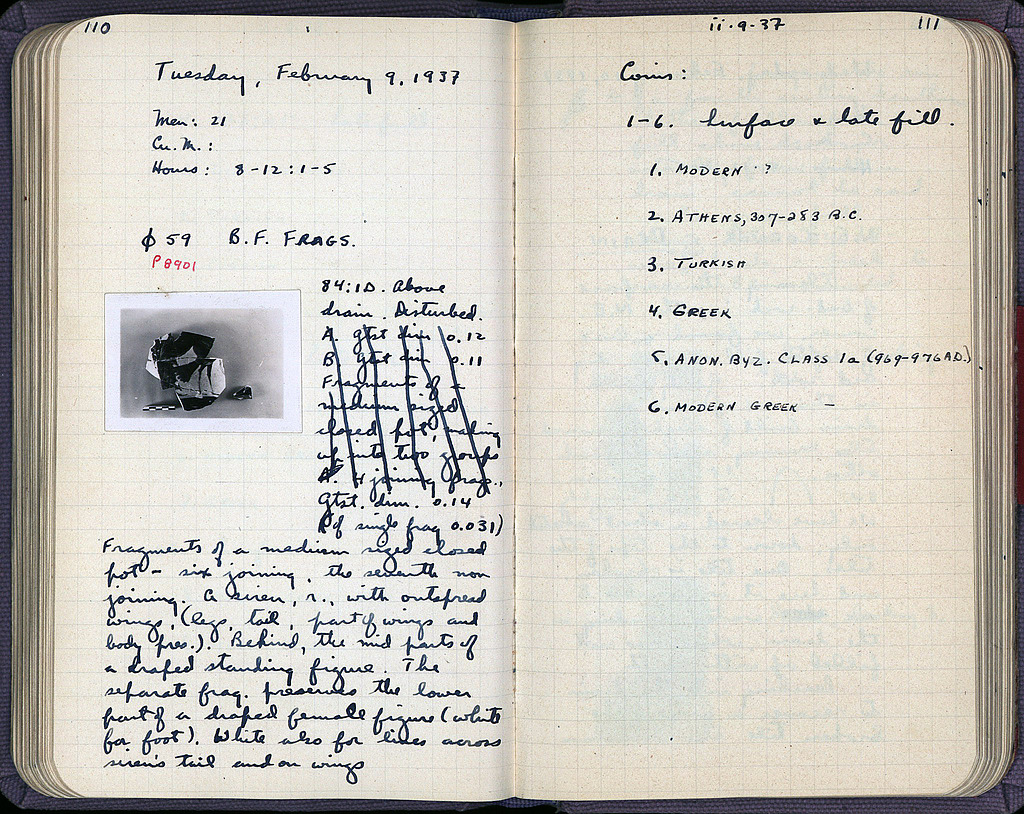 110
Tuesday, February 9, 1937
Men: 21
Cu. M.:
Hours: 8-12: 1-5
ϕ 59 B.F. FRAGS.
P 8901
84:ID. Above
drain. Disturbed.
A. gtst dim 0.12
B. gtst dim 0.11
Fragments of a
medium sized
closed pot, making
up into two groups
A. 4 joining frags.,
Gtst. dim. 0.14
(of single frag 0.031)
Fragments of a medium sized closed
pot - six joining, the seventh non
joining. A siren, r., with outspread
wings, (legs, tail, part of wings and
body pres.). Behind, the mid parts of
a draped standing figure. The
separate frag. preserves the lower
part of a draped female figure (white
for foot). White also for lines across
siren's tail and on wings
ii.9.37
111
Coins:
1-6. Surface & late fill.
1. MODERN ?
2. ATHENS, 307-283 B.C.
3. TURKISH
4. GREEK
5. ANON. BYZ. CLASS Ia (969-976 AD.)
6. MODERN GREEK -